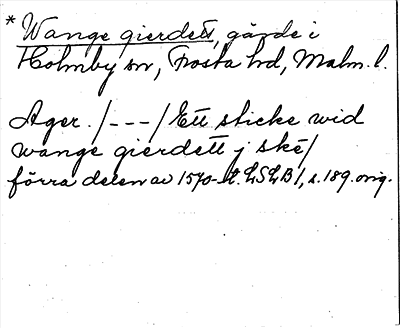 * Wange gierdett, gärde i
Holmby sn, Frosta hd, Malm. l.
Ager. /---/ Ett sticke wid
wange gierdett j skē/
förra delen av 1570-t. LSLB 1, s. 189. orig.